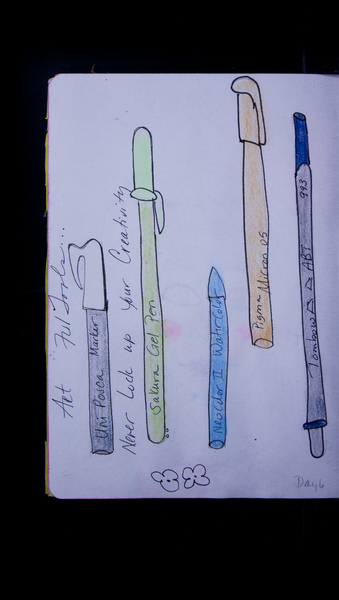 Art Ful Tools...
Uni Posca Marker
Never Lock up your Creativity
Sakura Gel Pen
Neocolor II Watercolor
Pigma Micron 05
Tombow ABT 993
Day 6